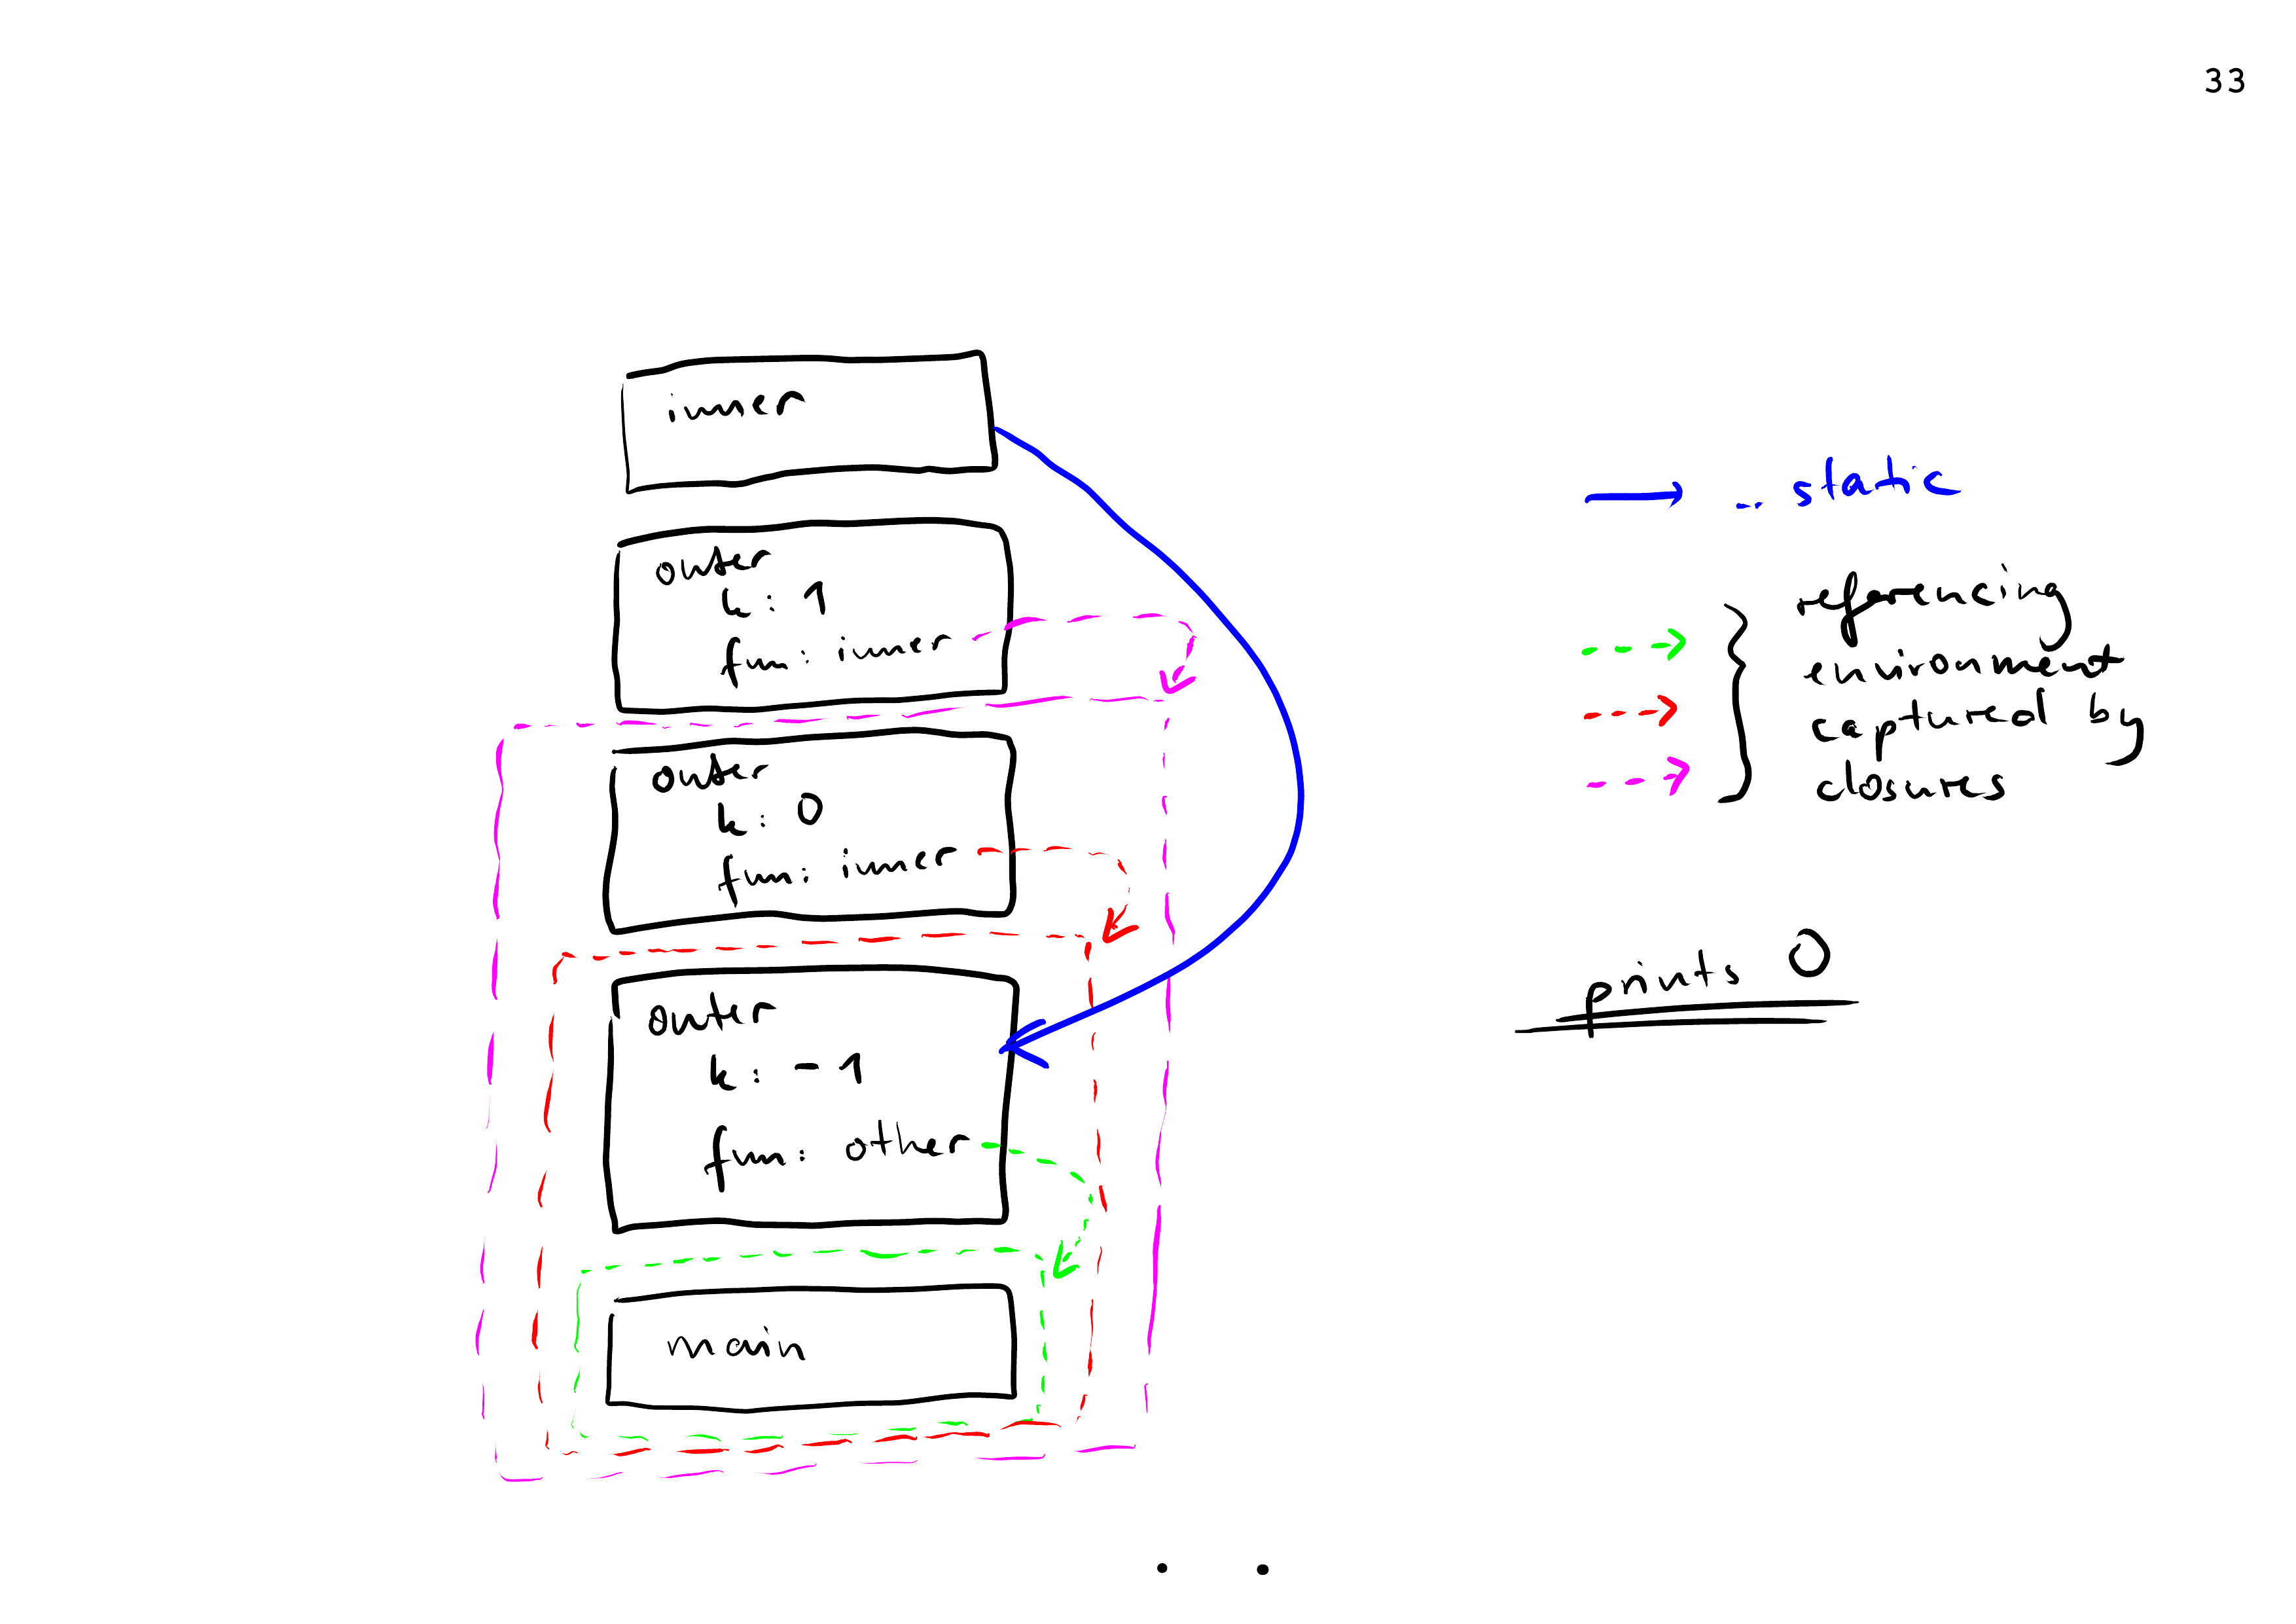 33
inner
outer
k: 1
fun: inner
outer
k: 0
fun: inner
outer
k: -1
fun: other
main
.. static
referencing
environment
captured by
closures
prints 0